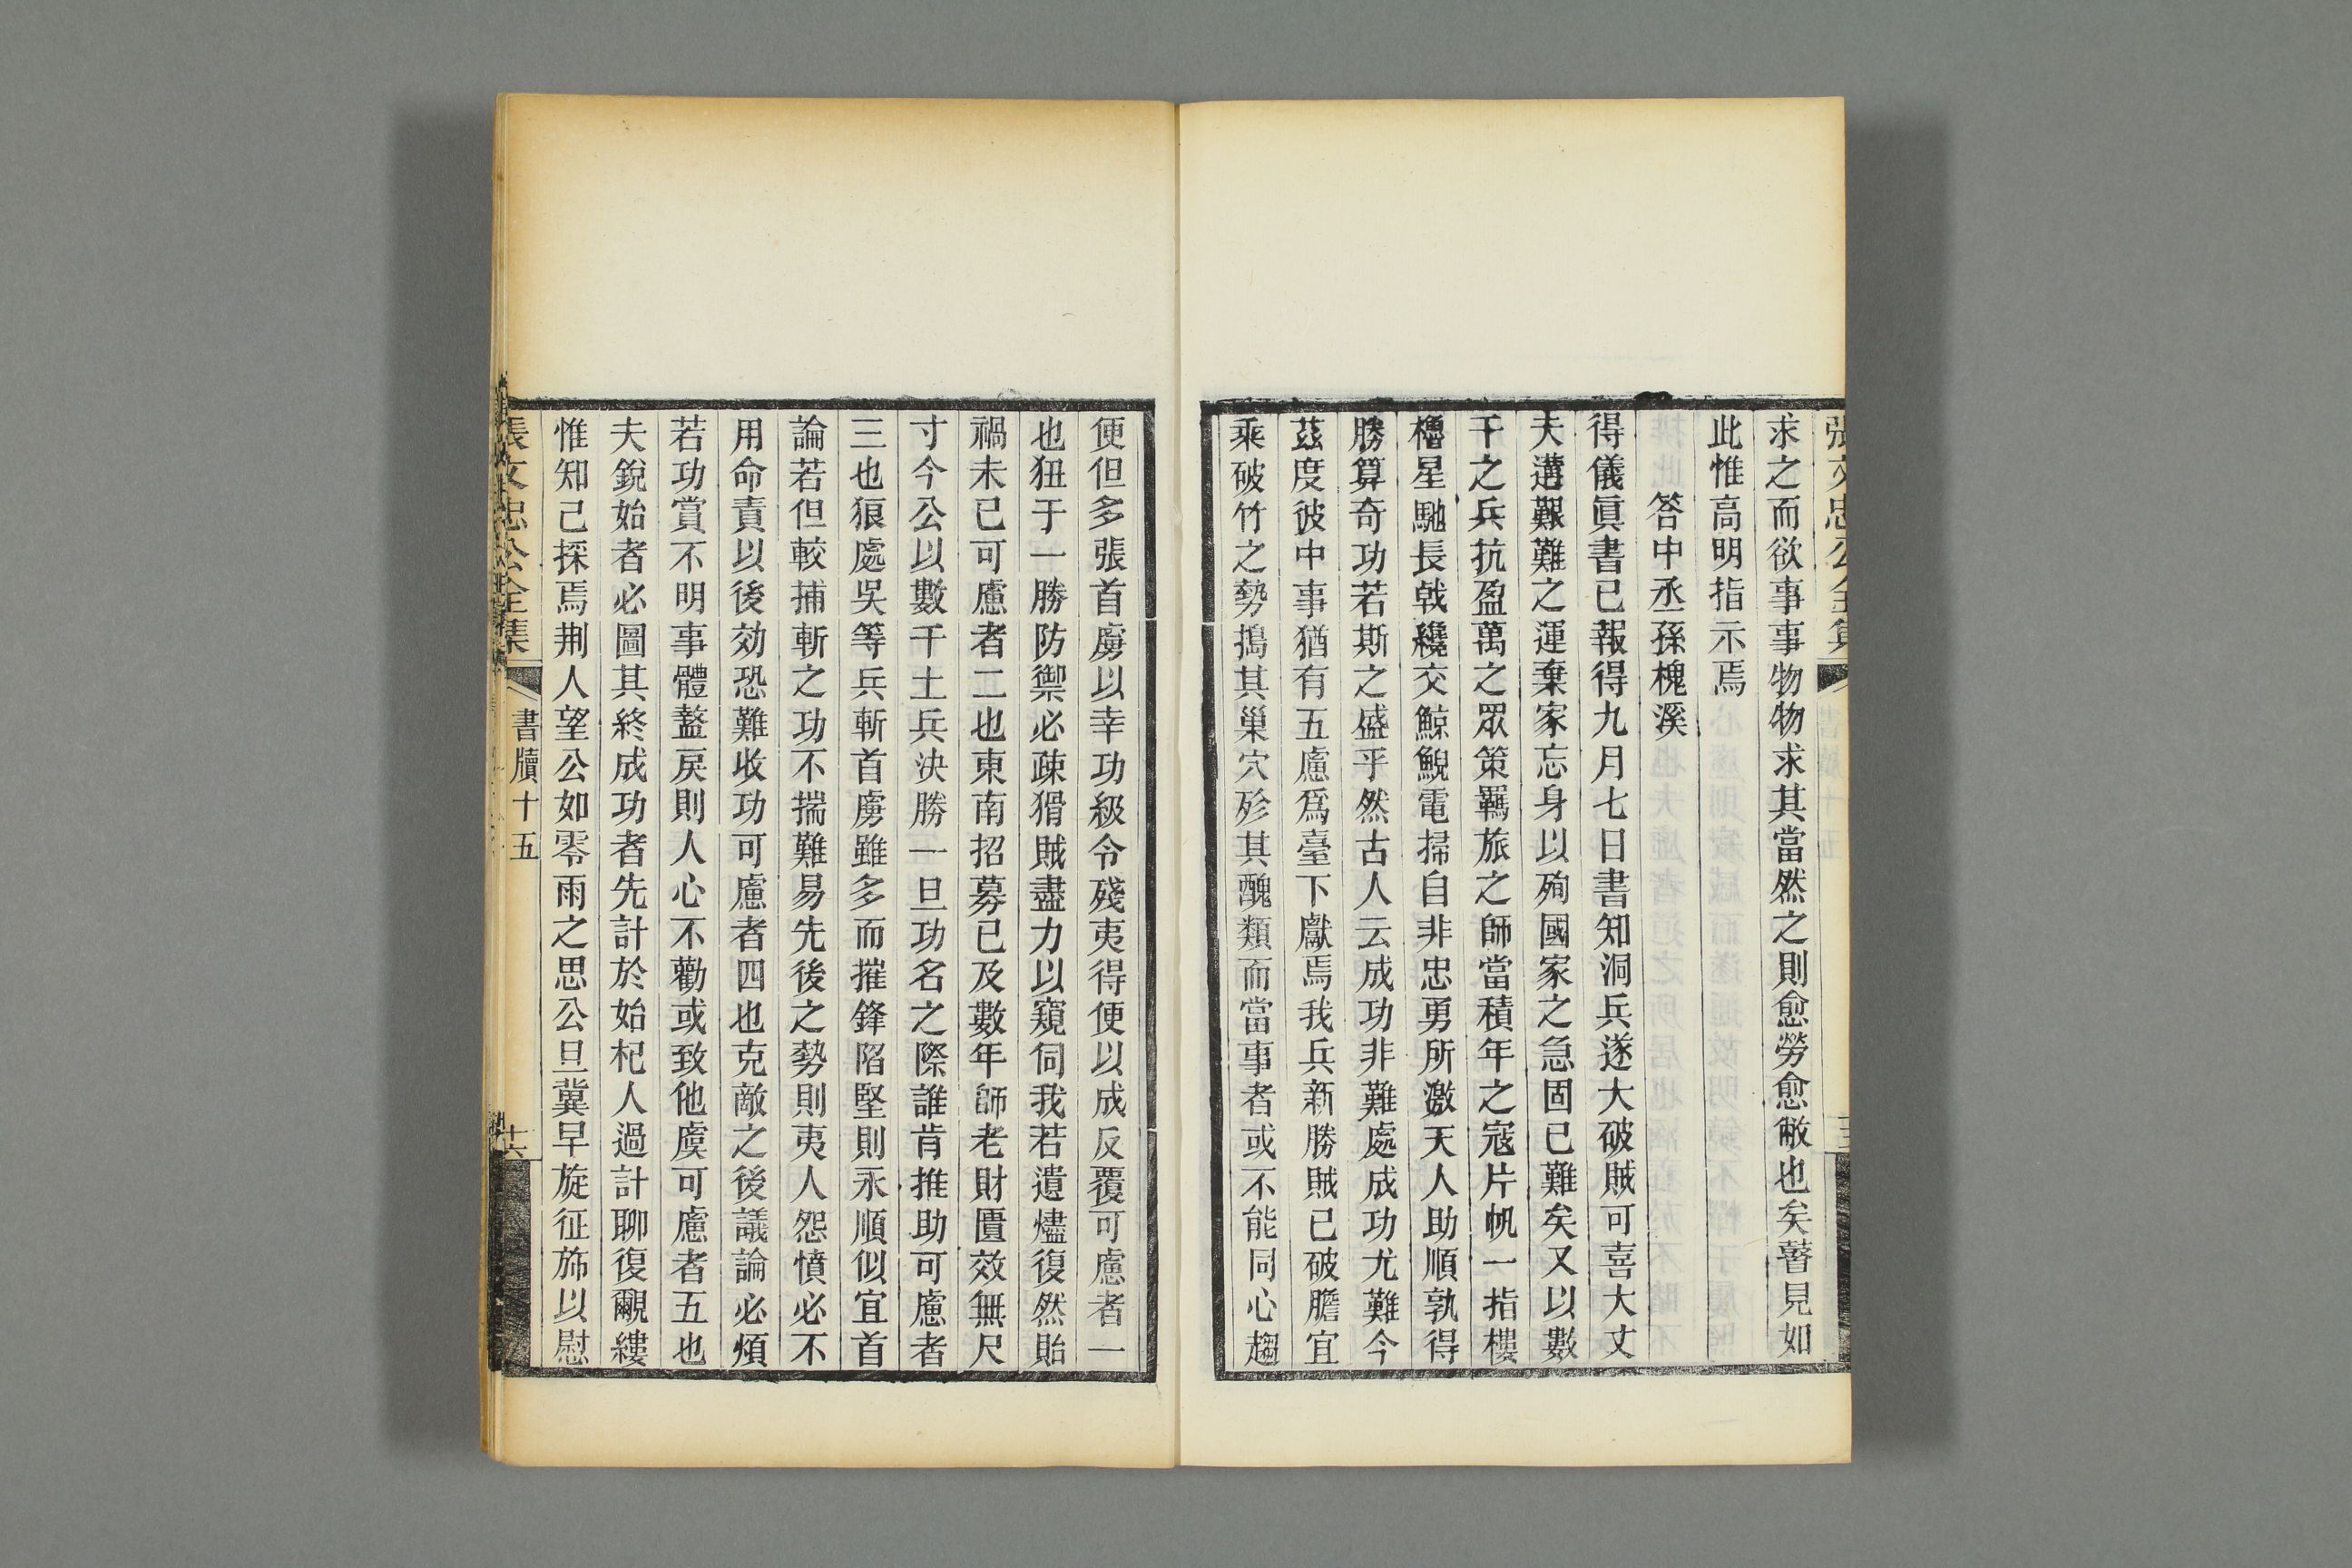 張文忠公全集
求之而欲事事物物求其當然之則愈勞愈敝也矣瞽見如
此惟高明指示焉
答中丞孫槐溪
得儀眞書已報得九月七日書知洞兵遂大破賊可喜大丈
夫遘艱難之運棄家忘身以殉國家之急固已難矣又以數
千之兵抗盈萬之眾策羈旅之師當積年之寇片帆一指樓
櫓星馳長戟纔交鯨鯢電掃自非忠勇所激天人助順孰得
勝算奇功若斯之盛乎然古人云成功非難處成功尤難今
茲度彼中事猶有五慮爲臺下獻焉我兵新勝賊已破膽宜
乘破竹之勢搗其巢穴殄其醜類而當事者或不能同心趨
便但多張首虜以幸功級令殘夷得便以成反覆可慮者一
也狃于一勝防禦必疎猾賊盡力以窺伺我若遺燼復然貽
禍未已可慮者二也東南招募已及數年師老財匱效無尺
寸今公以數千土兵決勝一旦功名之際誰肯推助可慮者
三也狼處吳等兵斬首虜雖多而摧鋒陷堅則永順似宜首
論若但較捕斬之功不揣難易先後之勢則夷人怨憤必不
用命責以後効恐難收功可慮者四也克敵之後議論必煩
若功賞不明事體盭戾則人心不勸或致他虞可慮者五也
夫銳始者必圖其終成功者先計於始杞人過計聊復覼縷
惟知己採焉荆人望公如零雨之思公旦冀早旋征斾以慰
張文忠公全集
書牘十五
十六